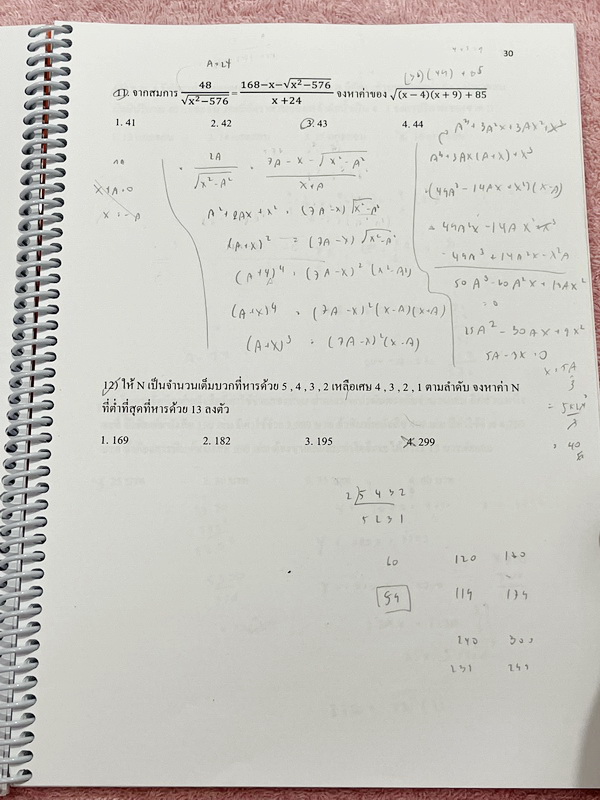 30
A=24
11. จากสมการ 48/√(x²−576) = (168−x−√(x²−576))/(x+24) จงหาค่าของ √((x−4)(x+9)+85)
1. 41 2. 42 3. 43 4. 44
2A/√(x²-A²) = (7A-x-√(x²-A²))/(x+A)
A²+2Ax+x² = (7A-x)√(x²-A²)
(A+x)² = (7A-x)√(x²-A²)
(A+x)⁴ = (7A-x)²(x²-A²)
(A+x)⁴ = (7A-x)²(x-A)(x+A)
(A+x)³ = (7A-x)²(x-A)
x+A=0
x=-A
A³+3A²x+3Ax²+x³
A³+3Ax(A+x)+x³
(49A²-14Ax+x²)(x-A)
= 0
25A²-30Ax+9x²
5A-3x=0
3
= 40
12) ให้ N เป็นจำนวนเต็มบวกที่หารด้วย 5 , 4 , 3 , 2 เหลือเศษ 4 , 3 , 2 , 1 ตามลำดับ จงหาค่า N
ที่ต่ำที่สุดที่หารด้วย 13 ลงตัว
1. 169 2. 182 3. 195 4. 299
2 5 4 3 2
5 2 3 1
60 120 180
59 119 179
240 300